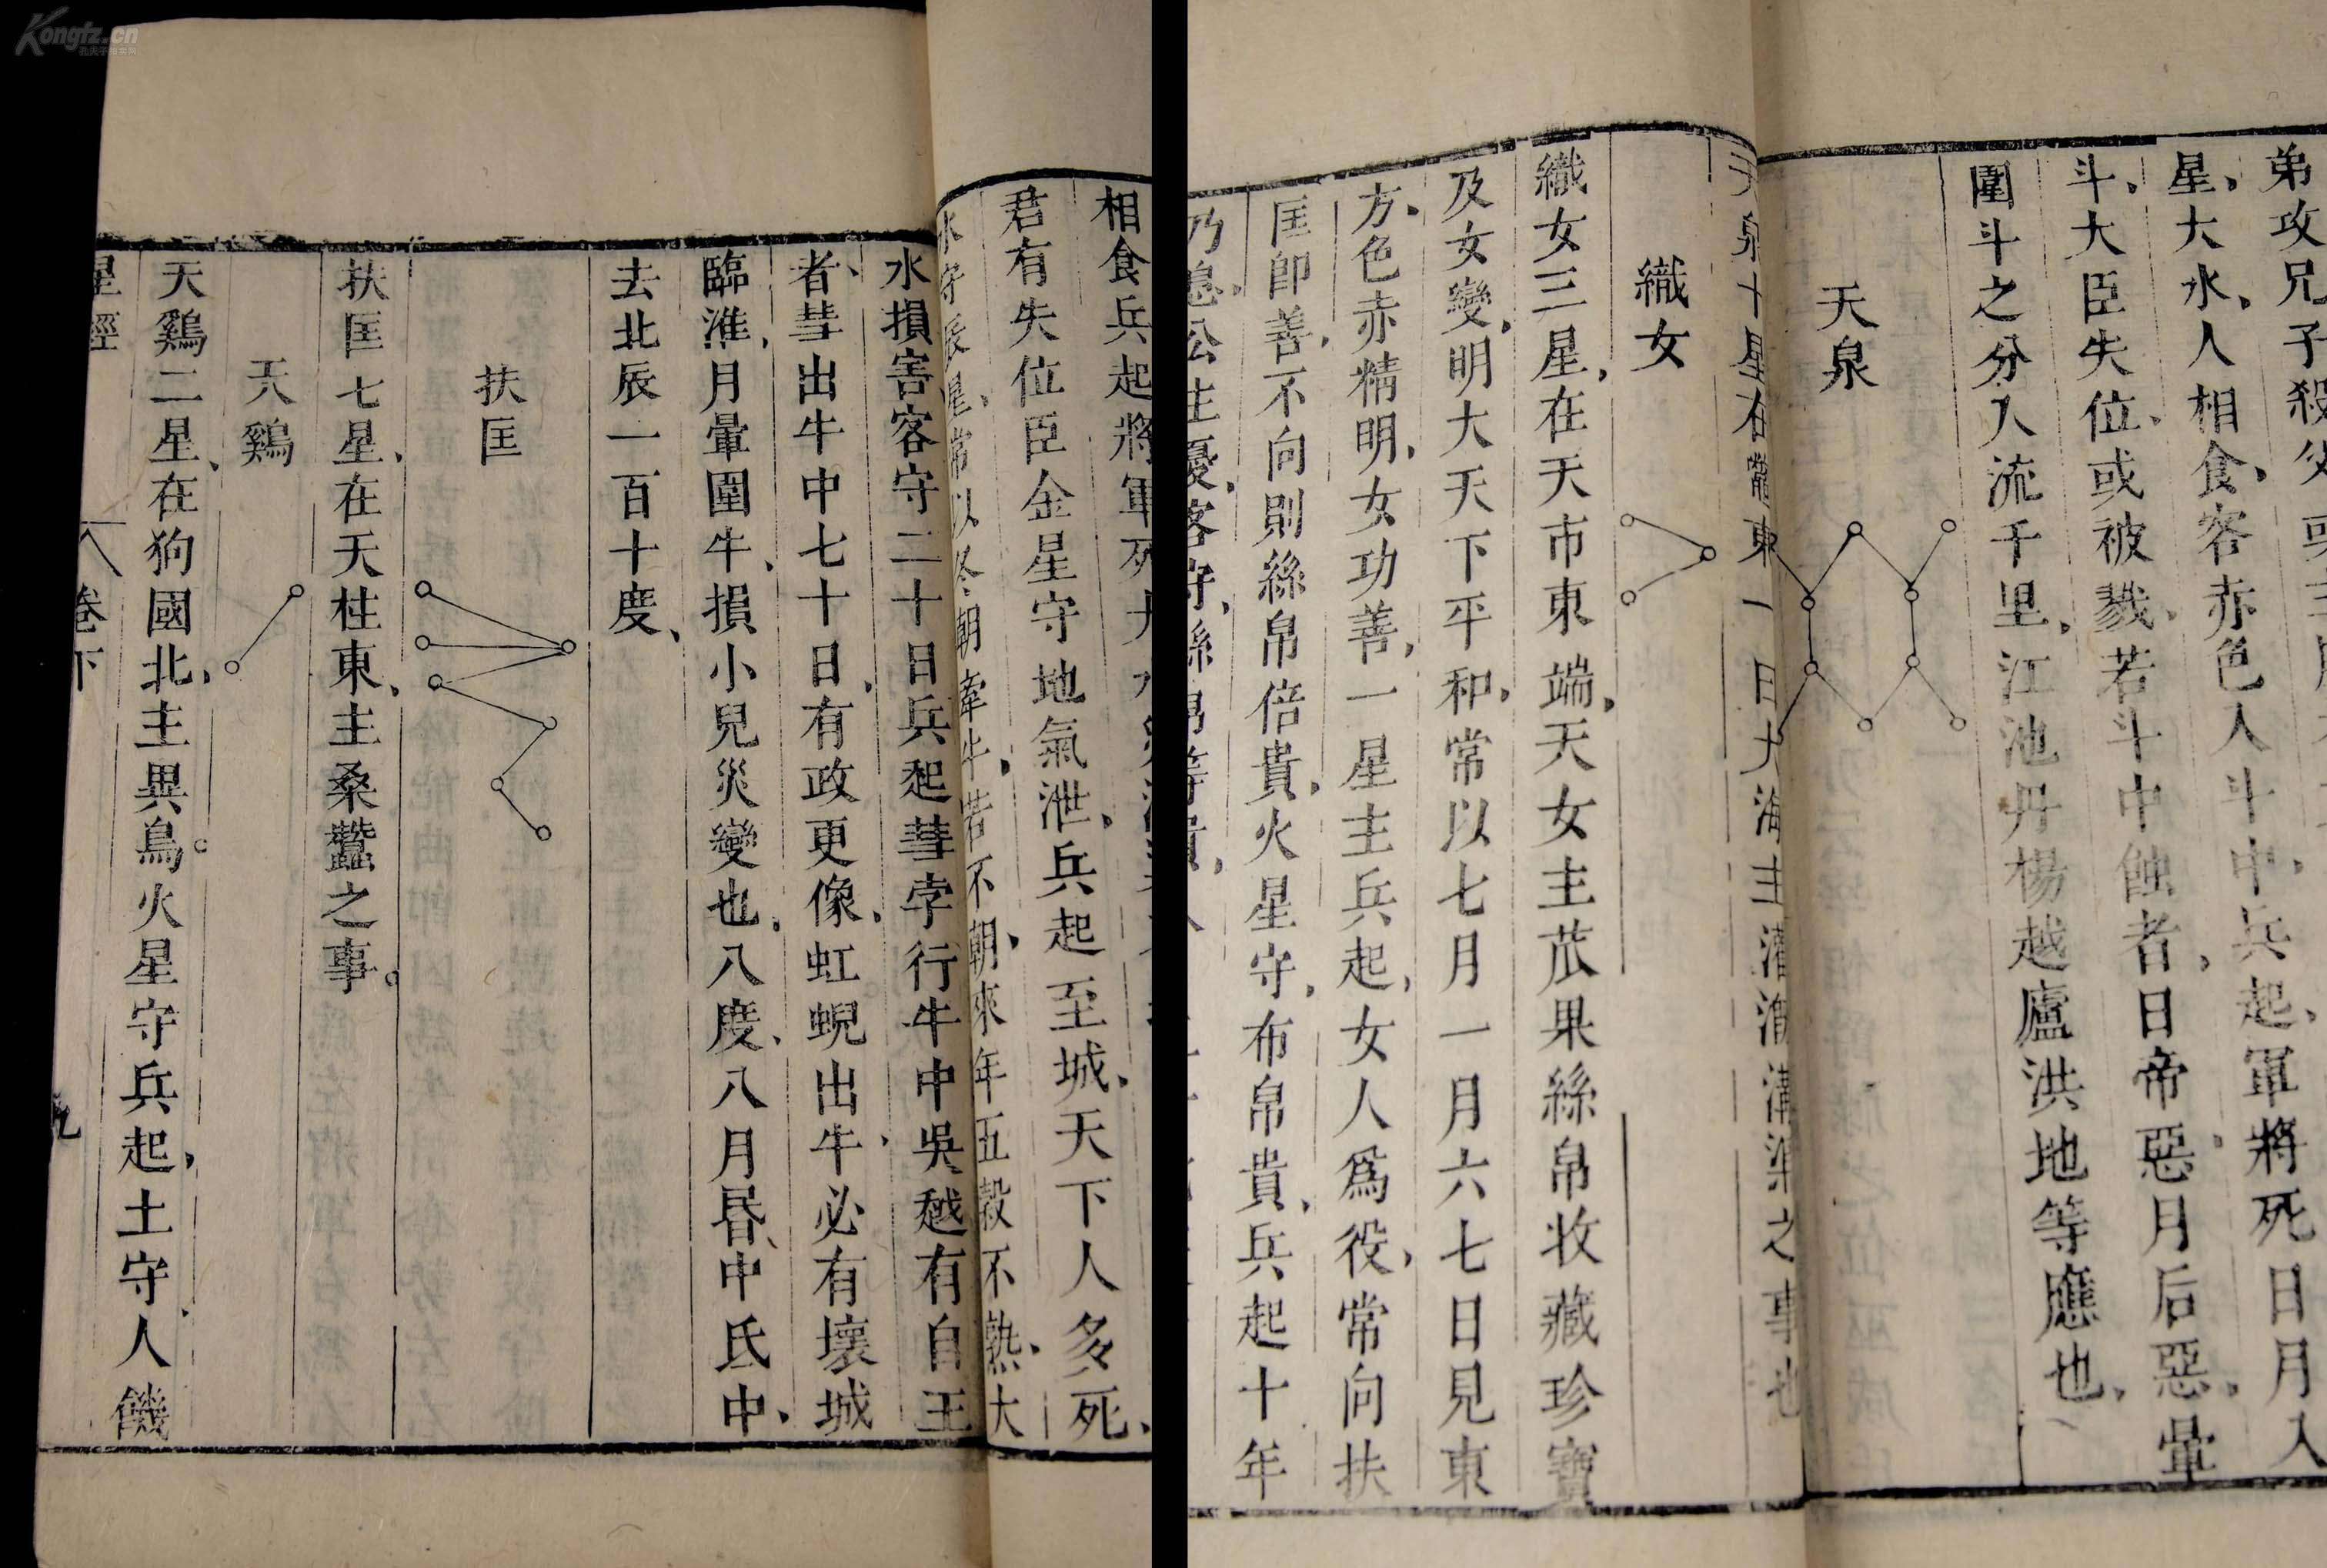 弟攻兄子殺父
星大水人相食客赤色入斗中兵起軍將死日月入
斗大臣失位或被戮若斗中蝕者日帝惡月后惡暈
圍斗之分人流千里江池丹楊越廬洪地等應也
天泉
天泉十星在鱉東一曰大海主灌溉溝渠之事也
織女
織女三星在天市東端天女主苽果絲帛收藏珍寶
及女變明大天下平和常以七月一月六七日見東
方色赤精明女功善一星主兵起女人爲役常向扶
匡即善不向則絲帛倍貴火星守布帛貴兵起十年
乃息公主憂客守絲帛等貴
相食兵起將軍死
君有失位臣金星守地氣泄兵起至城天下人多死
水守辰星常以冬朝牽牛若不朝來年五穀不熟大
水損害客守二十日兵起彗孛行牛中吳越有自王
者彗出牛中七十日有政更像虹蜺出牛必有壞城
臨淮月暈圍牛損小兒災變也八度八月昏中氐中
去北辰一百十度
扶匡
扶匡七星在天柱東主桑蠶之事
天鷄
天鷄二星在狗國北主異鳥火星守兵起土守人饑
星經 卷下 九
Kongfz.cn